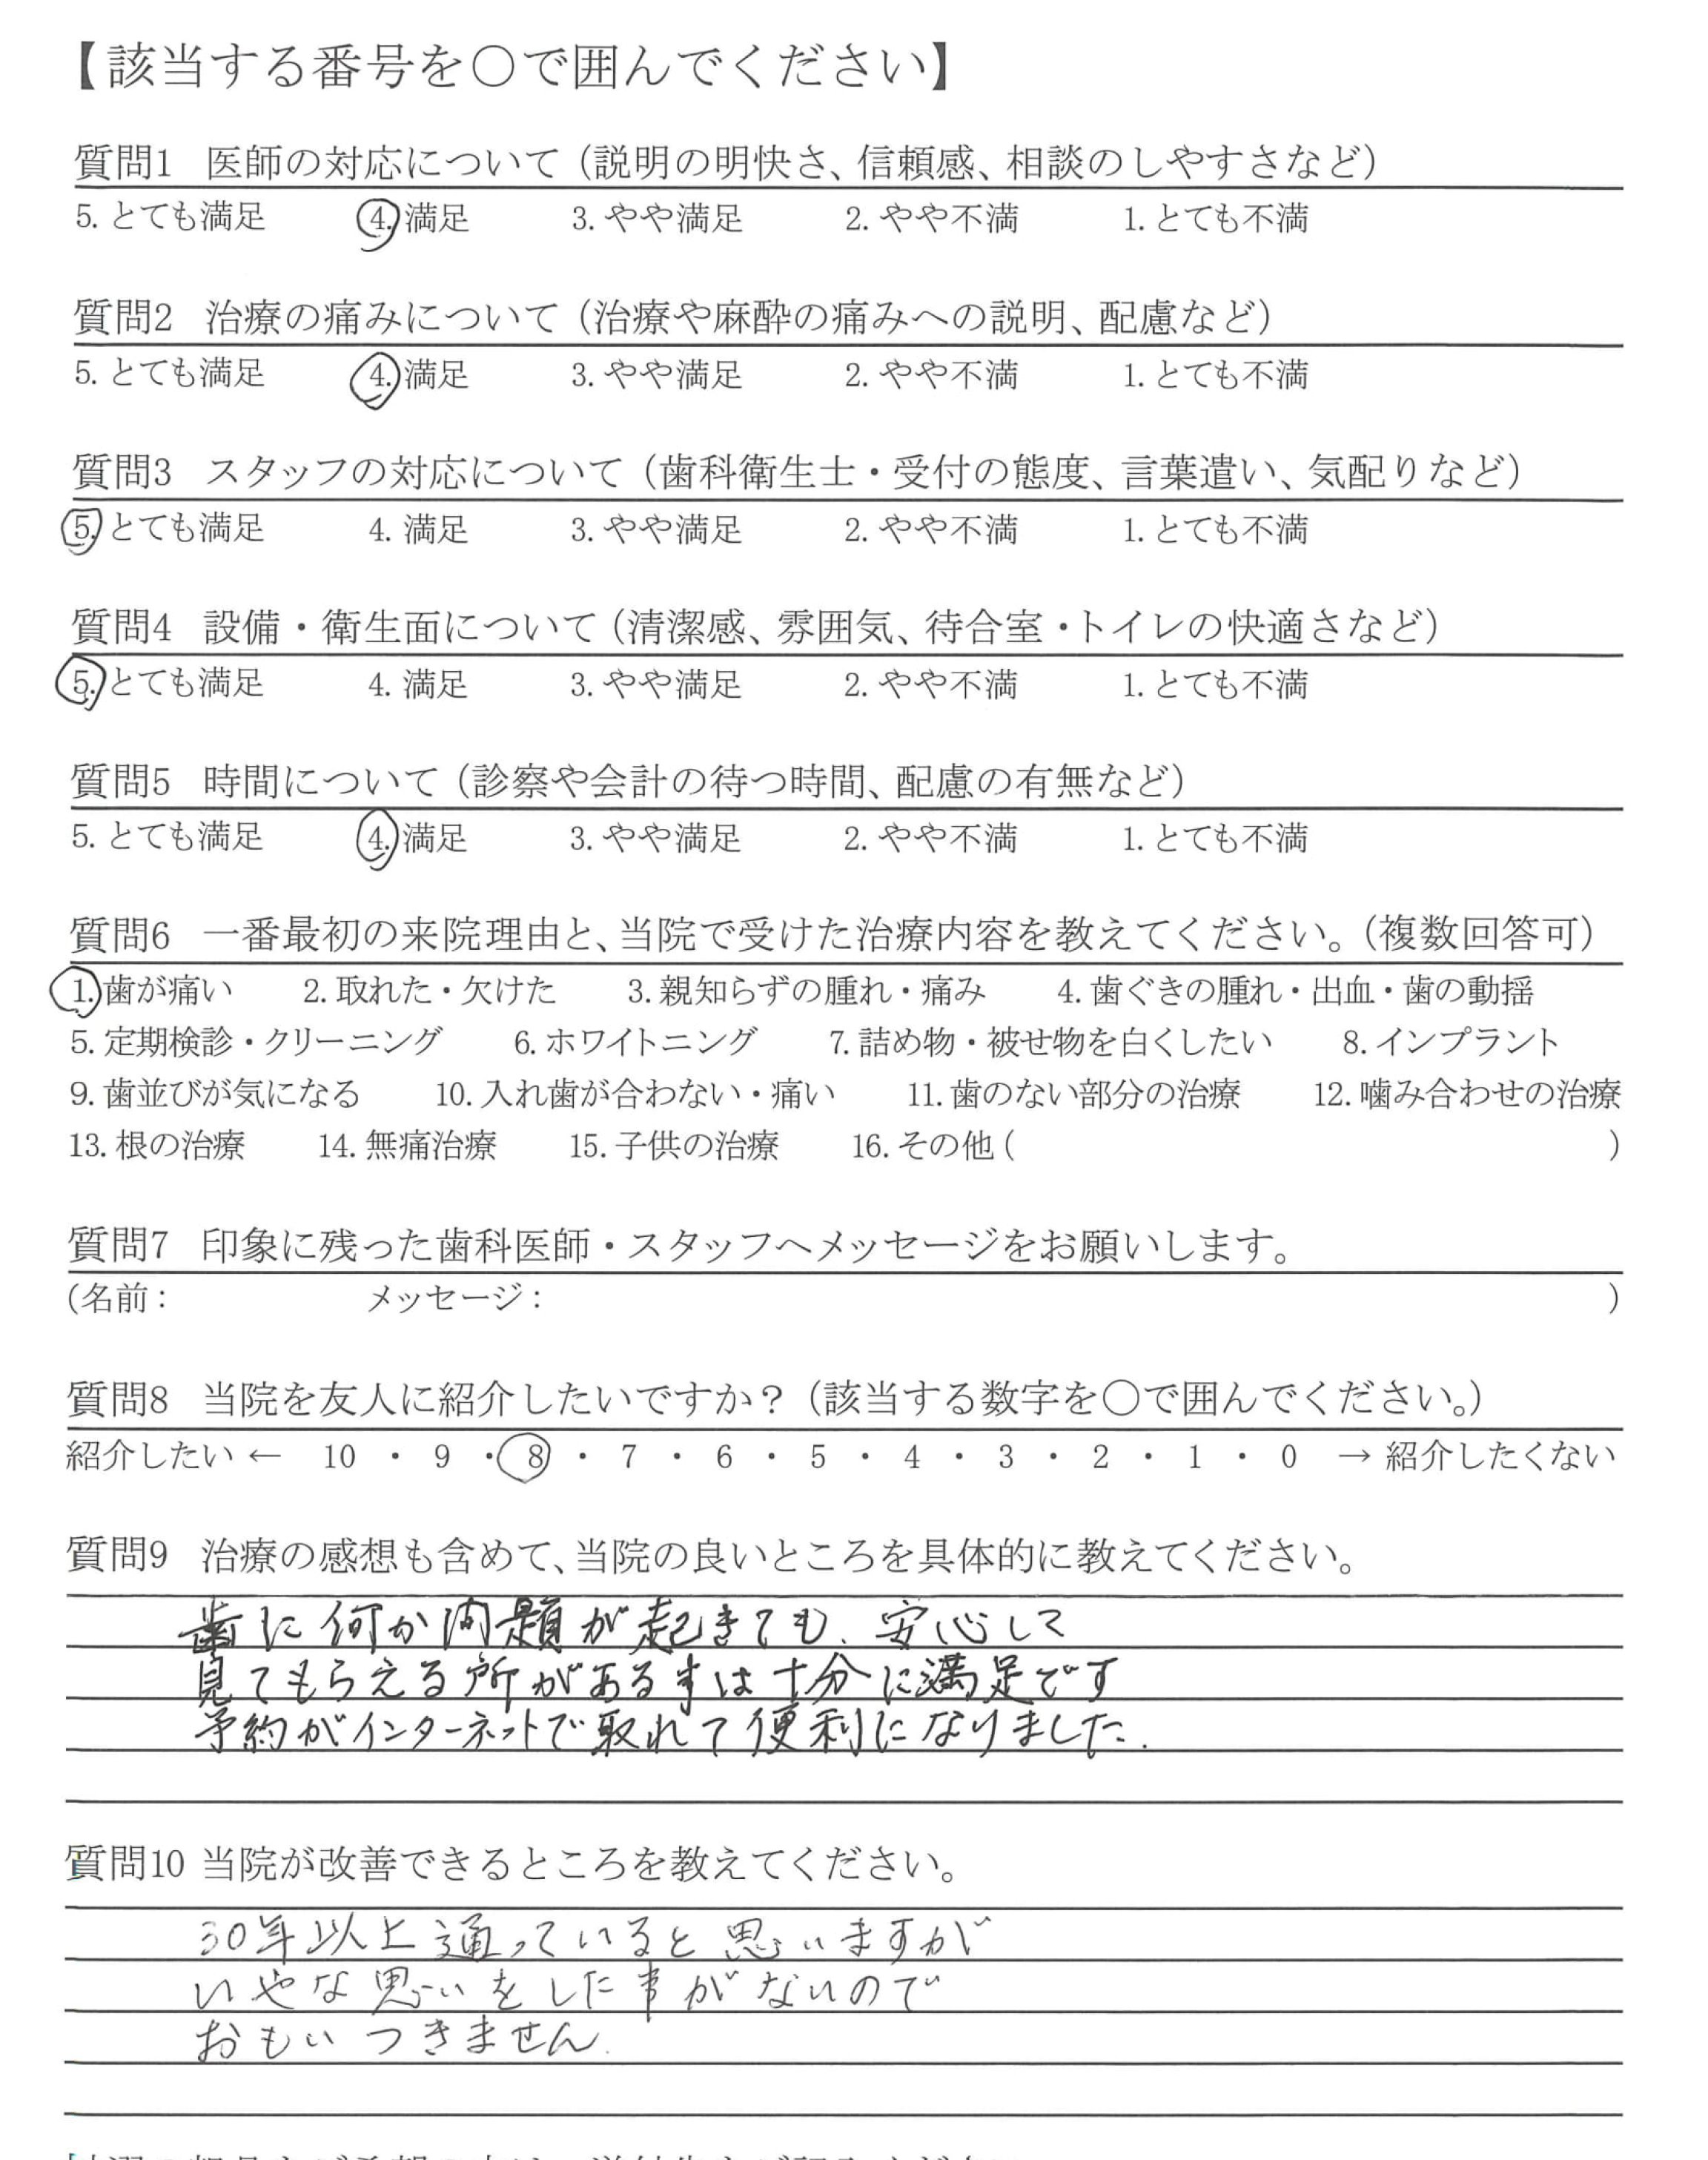 【該当する番号を○で囲んでください】
質問1 医師の対応について（説明の明快さ、信頼感、相談のしやすさなど）
5. とても満足 4. 満足 3. やや満足 2. やや不満 1. とても不満
質問2 治療の痛みについて（治療や麻酔の痛みへの説明、配慮など）
5. とても満足 4. 満足 3. やや満足 2. やや不満 1. とても不満
質問3 スタッフの対応について（歯科衛生士・受付の態度、言葉遣い、気配りなど）
5. とても満足 4. 満足 3. やや満足 2. やや不満 1. とても不満
質問4 設備・衛生面について（清潔感、雰囲気、待合室・トイレの快適さなど）
5. とても満足 4. 満足 3. やや満足 2. やや不満 1. とても不満
質問5 時間について（診察や会計の待つ時間、配慮の有無など）
5. とても満足 4. 満足 3. やや満足 2. やや不満 1. とても不満
質問6 一番最初の来院理由と、当院で受けた治療内容を教えてください。（複数回答可）
1. 歯が痛い 2. 取れた・欠けた 3. 親知らずの腫れ・痛み 4. 歯ぐきの腫れ・出血・歯の動揺
5. 定期検診・クリーニング 6. ホワイトニング 7. 詰め物・被せ物を白くしたい 8. インプラント
9. 歯並びが気になる 10. 入れ歯が合わない・痛い 11. 歯のない部分の治療 12. 噛み合わせの治療
13. 根の治療 14. 無痛治療 15. 子供の治療 16. その他 ( )
質問7 印象に残った歯科医師・スタッフへメッセージをお願いします。
(名前： メッセージ： )
質問8 当院を友人に紹介したいですか？（該当する数字を○で囲んでください。）
紹介したい ← 10 ・ 9 ・ 8 ・ 7 ・ 6 ・ 5 ・ 4 ・ 3 ・ 2 ・ 1 ・ 0 → 紹介したくない
質問9 治療の感想も含めて、当院の良いところを具体的に教えてください。
歯に何か問題が起きても、安心して
見てもらえる所がある事は十分に満足です
予約がインターネットで取れて便利になりました.
質問10 当院が改善できるところを教えてください。
30年以上通っていると思いますが
いやな思いをした事がないので
おもいつきません.